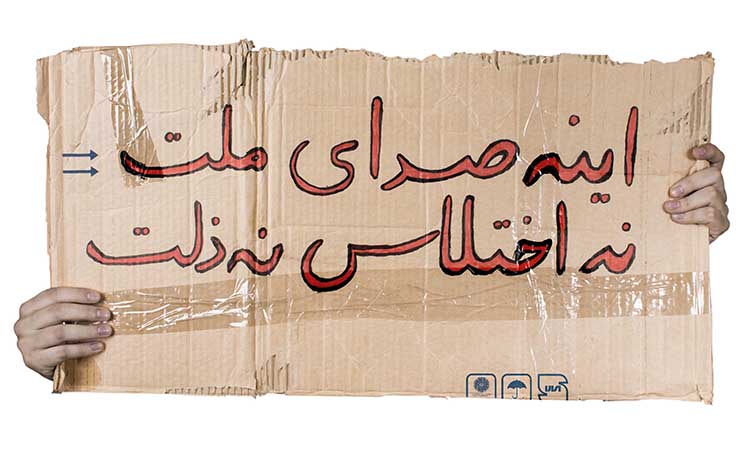 اینه صدای ملت
نه اختلاس نه ذلت